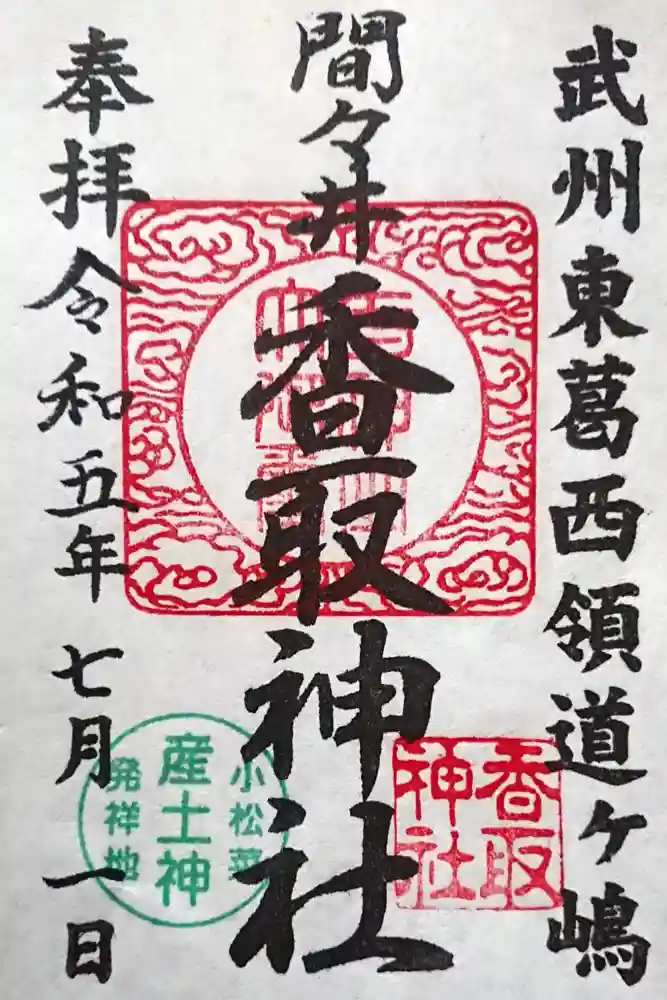 武州東葛西領道ヶ嶋
間々井
香取神社
奉拝
令和五年
七月一日
香取
神社
小松菜
産土神
発祥地